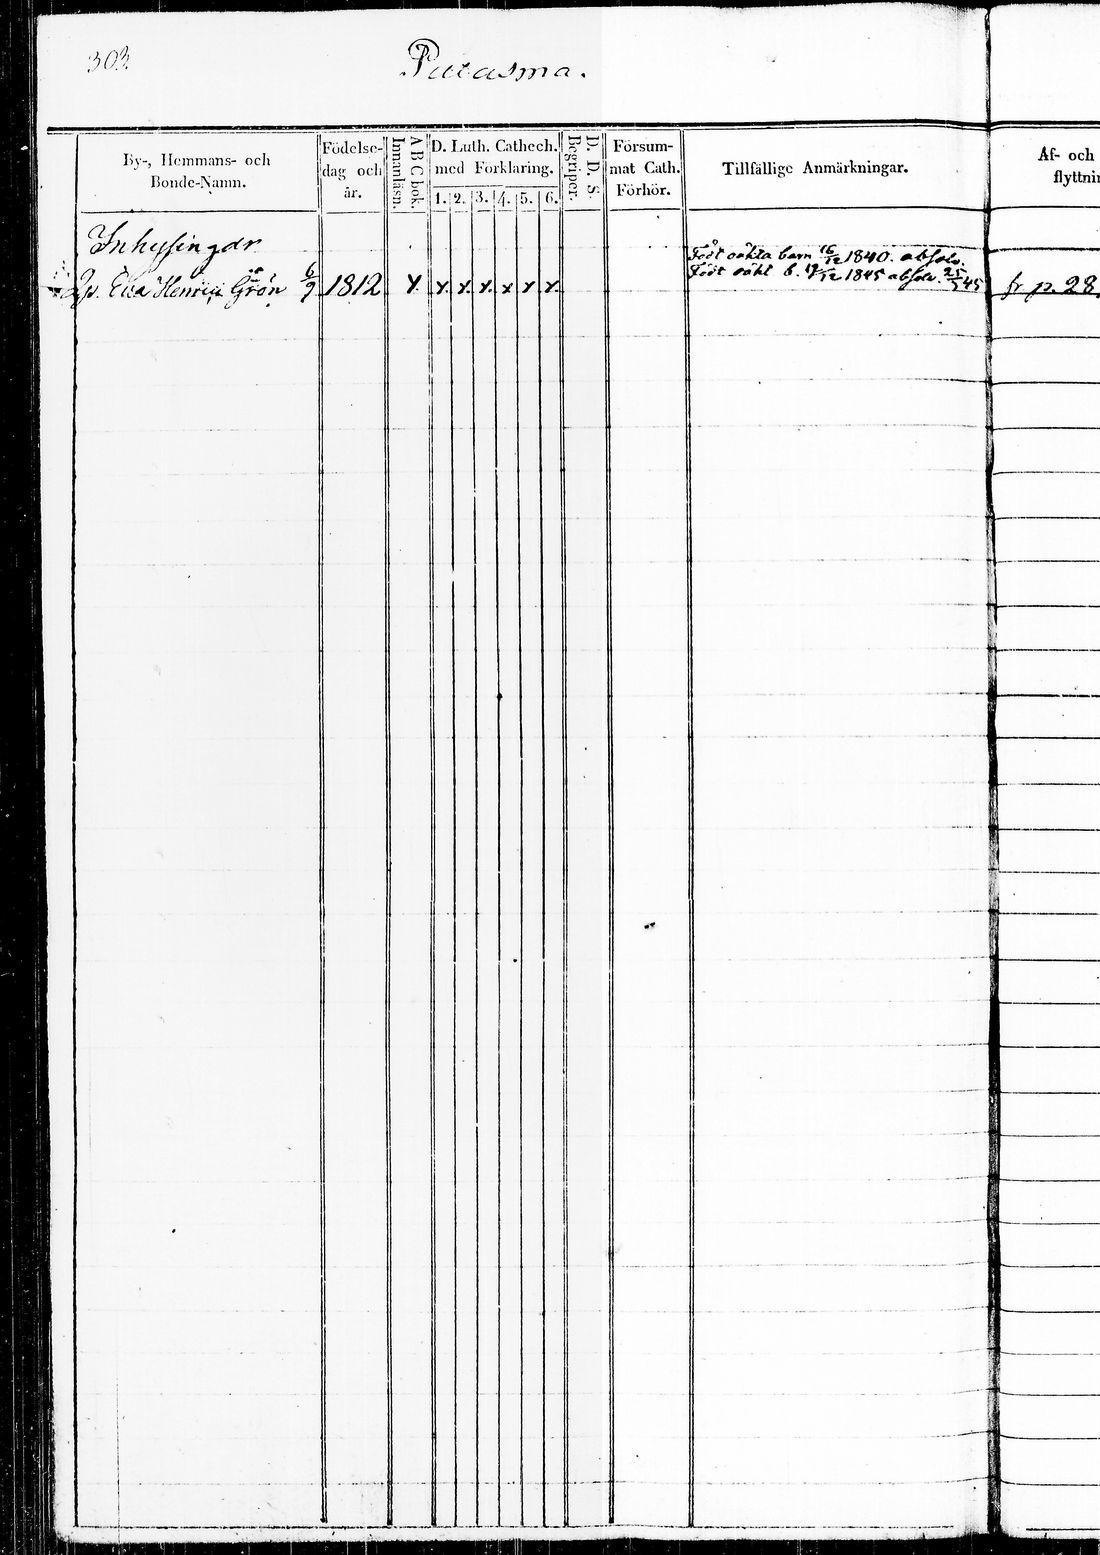 303.
Putasma.
By-, Hemmans- och
Bonde-Namn.
Födelse-
dag och
år.
A B C bok.
Innanläsn.
D. Luth. Cathech.
med Förklaring.
1. 2. 3. 4. 5. 6.
D. D. S.
Begriper.
Försum-
mat Cath.
Förhör.
Tillfällige Anmärkningar.
Af- och
flyttnin
Inhysingar
Eva Henrica Grön 6/9 1812 x x x x x x x
Födt oäkta barn 16/12 1840. absolv.
Födt oäkt b. 17/12 1845 absolv. 25/5 45
fr p. 28